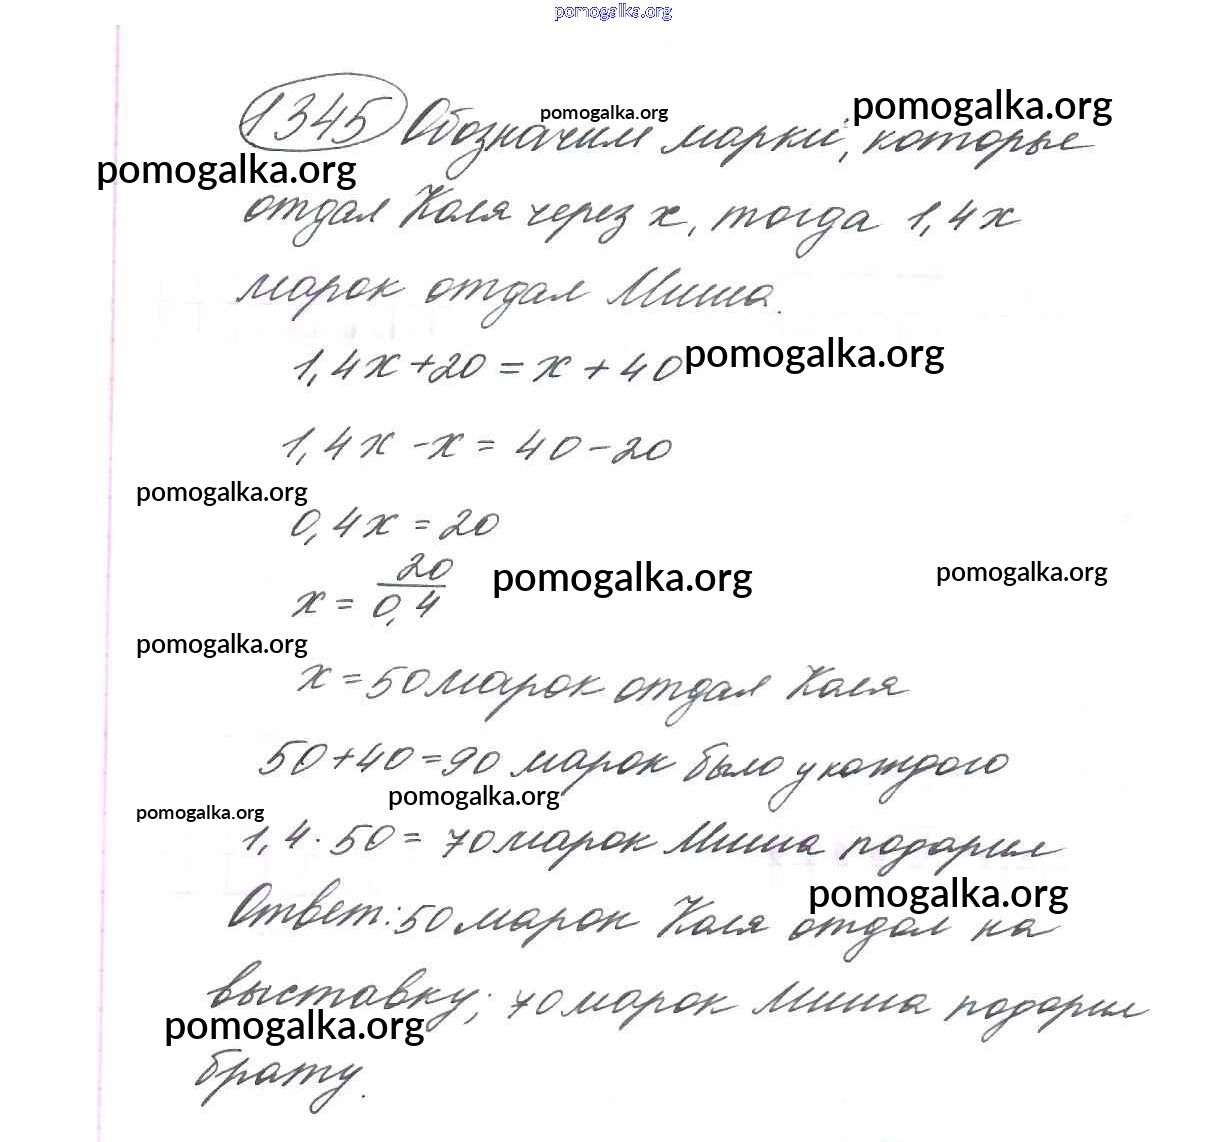 pomogalka.org
1345 Обозначим марки, которые
pomogalka.org
pomogalka.org
pomogalka.org
отдал Коля через x, тогда 1,4x
марок отдал Миша.
1,4x + 20 = x + 40
pomogalka.org
1,4x - x = 40 - 20
pomogalka.org
0,4x = 20
x = 20/0,4
pomogalka.org
pomogalka.org
pomogalka.org
x = 50 марок отдал Коля
50 + 40 = 90 марок было у каждого
pomogalka.org
pomogalka.org
1,4 · 50 = 70 марок Миша подарил
pomogalka.org
Ответ: 50 марок Коля отдал на
выставку; 70 марок Миша подарил
pomogalka.org
брату.